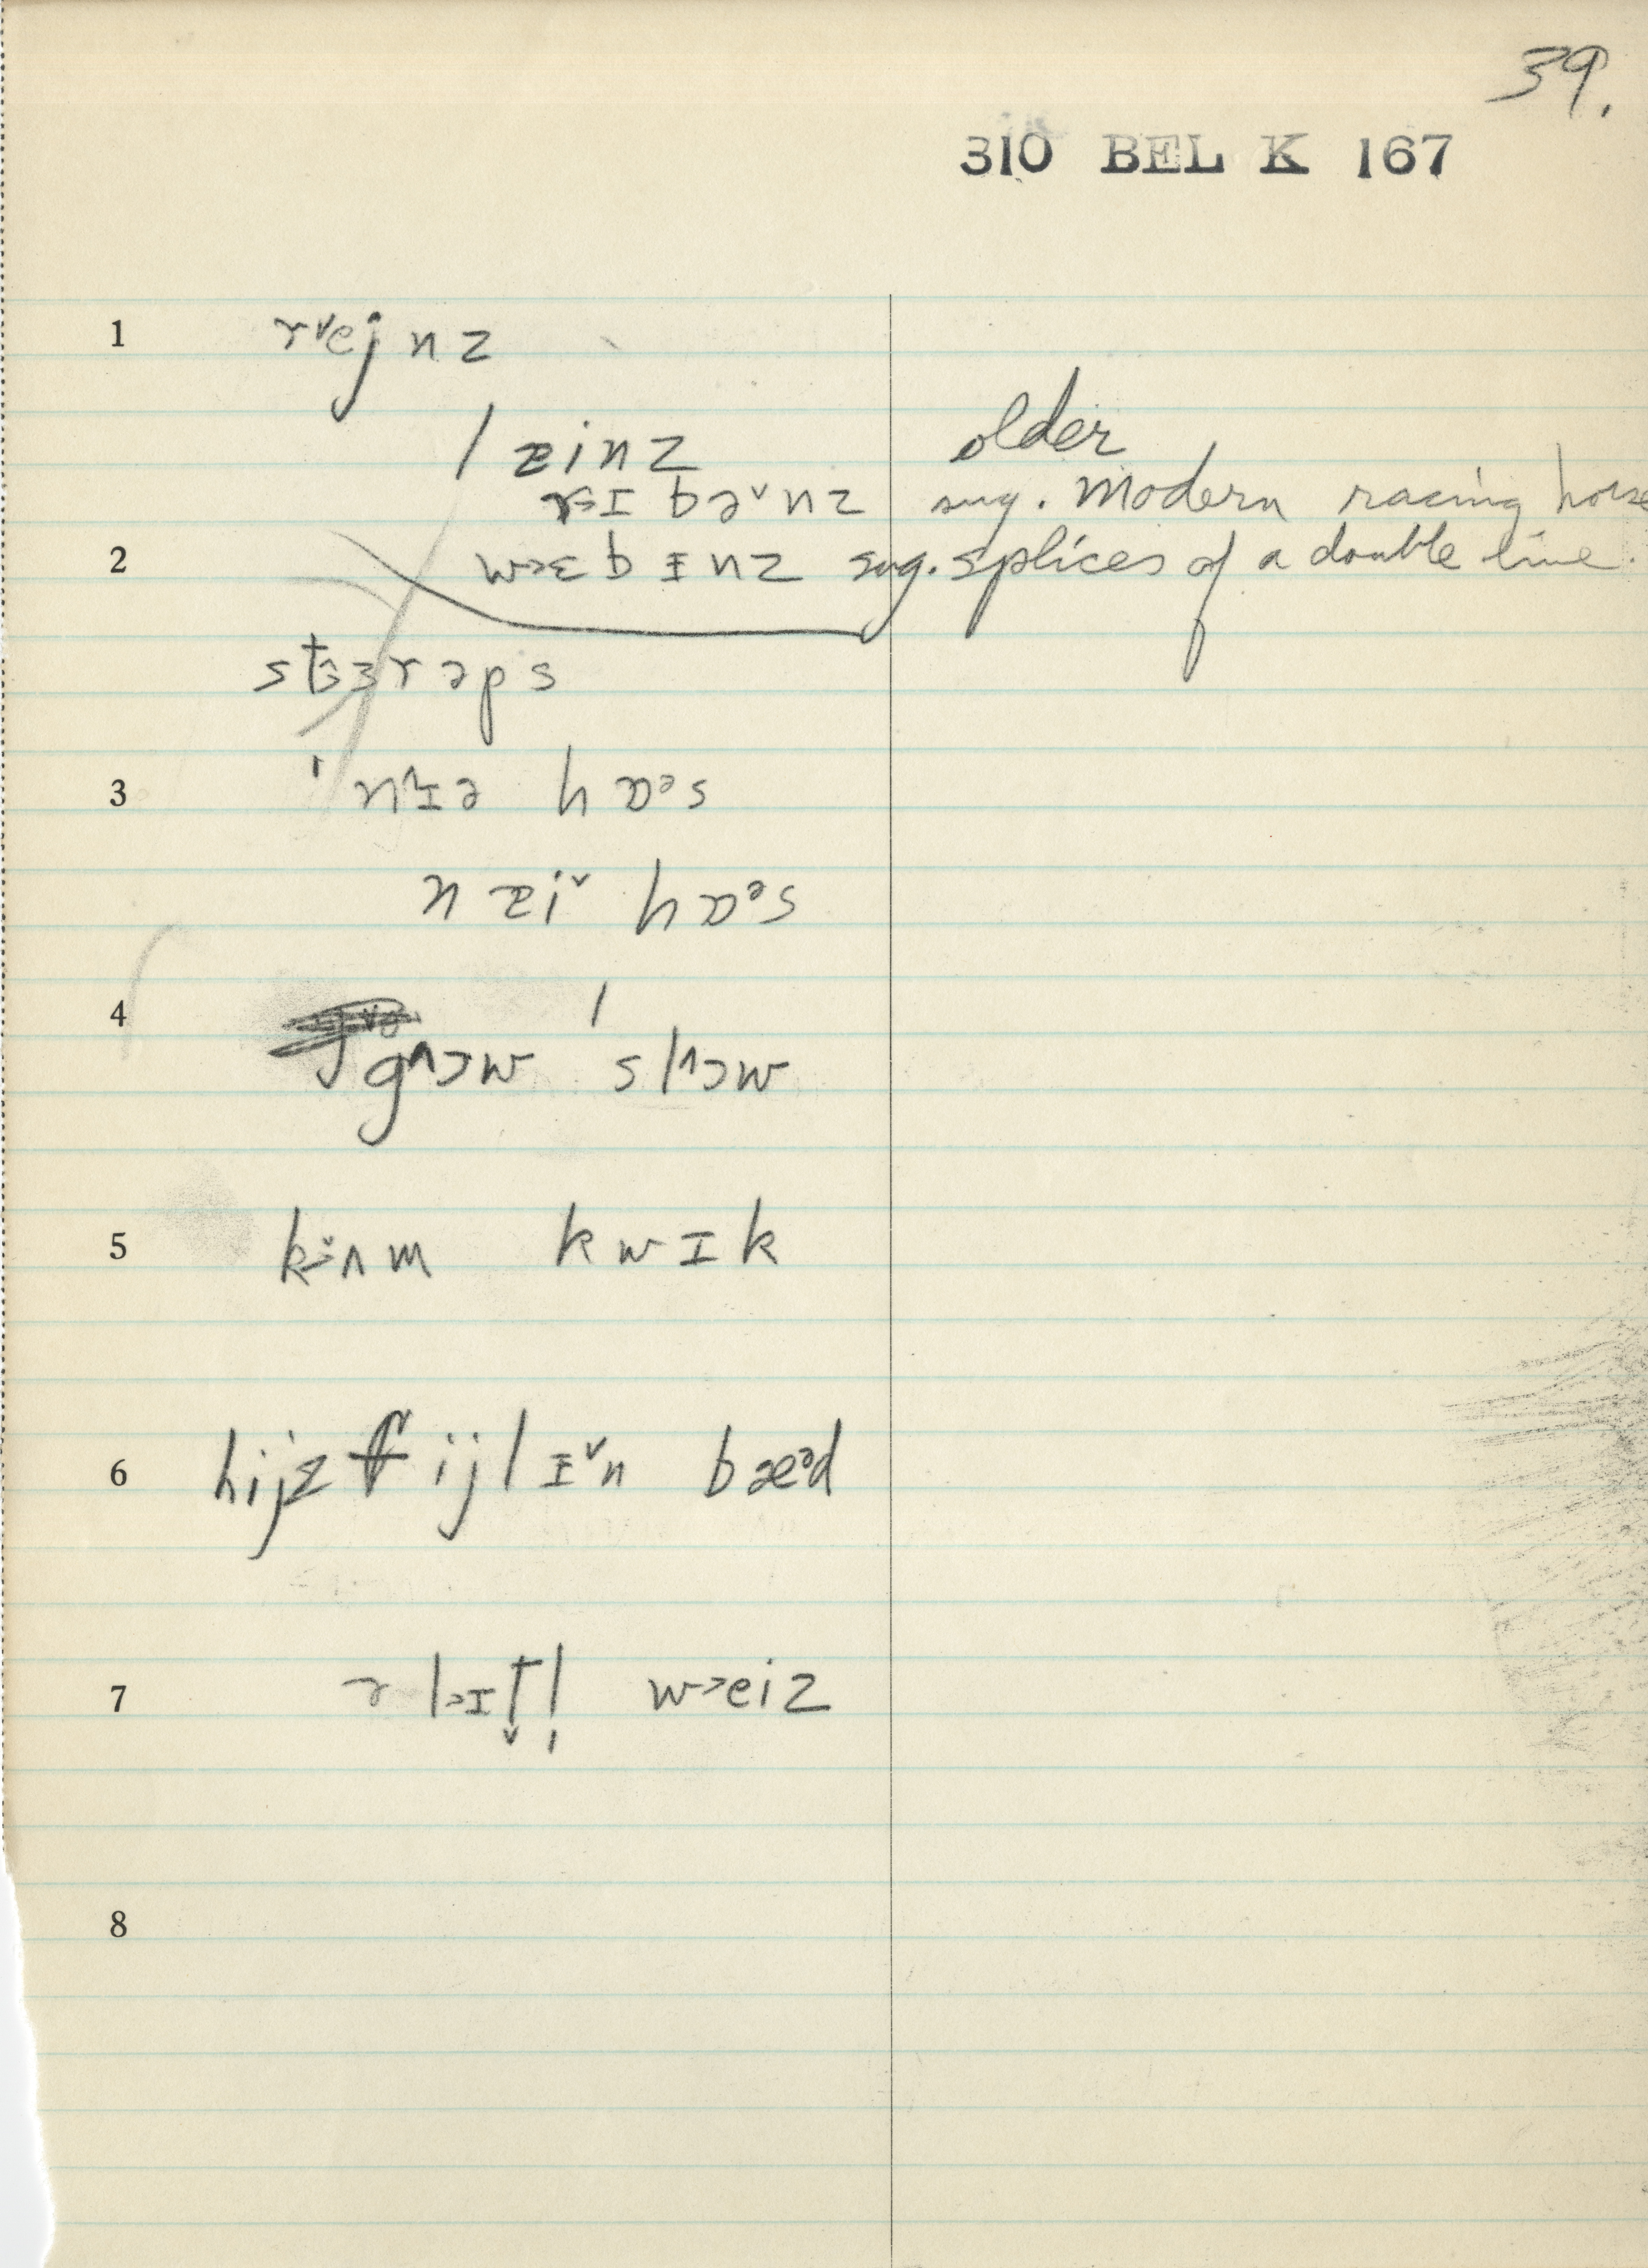 39.
310 BEL K 167
1 r˅ejnz
/ lɛinz older
rɪbə˅nz sug. Modern racing horse
2 w>ɛbɪnz sug. splices of a double line.
stɜrəps
3 'n^ɪə hɒᵊs
n ɛi˅ hɒᵊs
4 g^ɔw 'sl^ɔw
5 kʌm kwɪk
6 hijz fijlɪ˅n bæᵊd
7 ə lɪt̬l̩ w>eiz
8